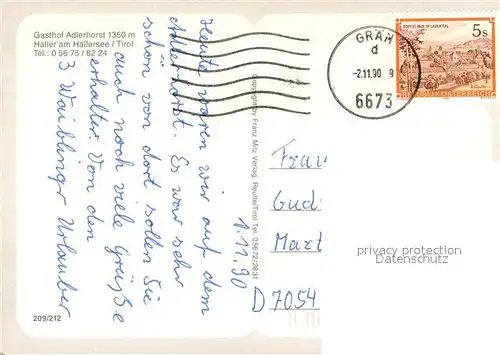 Gasthof Adlerhorst 1350 m
Haller am Hallersee / Tirol
Tel.: 0 56 75 / 82 24
1.11.90
Heute waren wir auf dem
Adlerhorst. Es war sehr
schön von dort sollen Sie
auch noch viele Grüße
erhalten von den
3 Waiblinger Urlauber
Copyright by Franz Milz Verlag, Reutte/Tirol Tel. 05672/2831
209/212
GRÄN
d
-2.11.90 9
6673
5s
REPUBLIK ÖSTERREICH
Frau
Gud
Mart
D 7054
privacy protection
Datenschutz